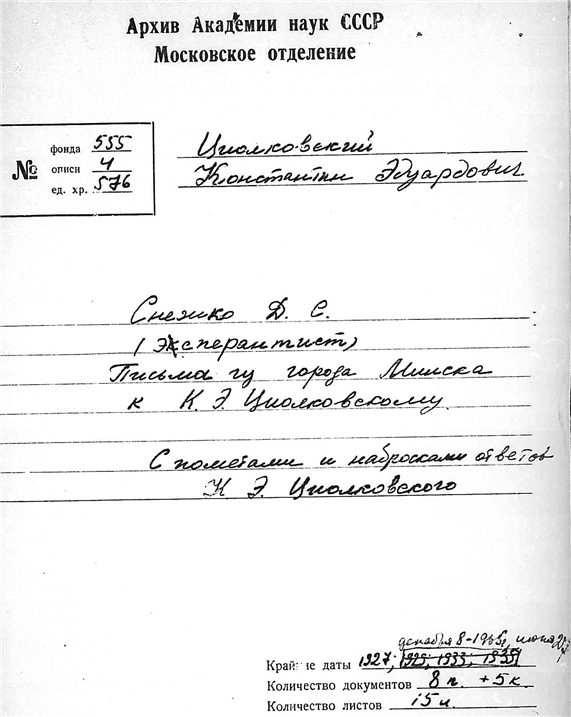 Архив Академии наук СССР
Московское отделение
№ фонда 555
описи 4
ед. хр. 576
Циолковский
Константин Эдуардович
Снежко Д. С.
(эксперантист)
Письма из города Минска
к К. Э. Циолковскому.
С пометами и набросками ответов
К Э. Циолковского
декабря 8 - июня 27
Крайние даты 1927; 1925; 1933; 1935
Количество документов 8 п. + 5 к.
Количество листов 15 л.